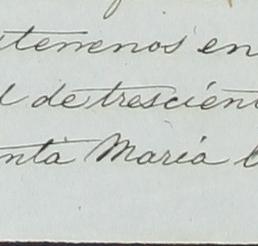 terrenos en
de trescien
nta Maria